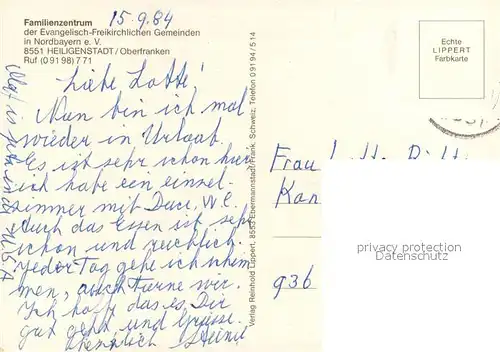 Familienzentrum
der Evangelisch-Freikirchlichen Gemeinden
in Nordbayern e. V.
8551 HEILIGENSTADT/Oberfranken
Ruf (0 91 98) 7 71
15.9.84
Liebe Lotte!
Nun bin ich mal
wieder in Urlaub.
Es ist sehr schön hier
ich habe ein einzel-
zimmer mit Dusc, W.C.
Auch das Essen ist sehr
schön und reichlich.
Jeder Tag gehe ich schwim
men, auch turne wir.
Ich hoff das es Dir
gut geht, und Grüsse.
herzlich
Verlag Reinhold Lippert, 8553 Ebermannstadt/Fränk. Schweiz, Telefon 0 91 94/5 14
Echte
LIPPERT
Farbkarte
Frau
936
privacy protection
Datenschutz